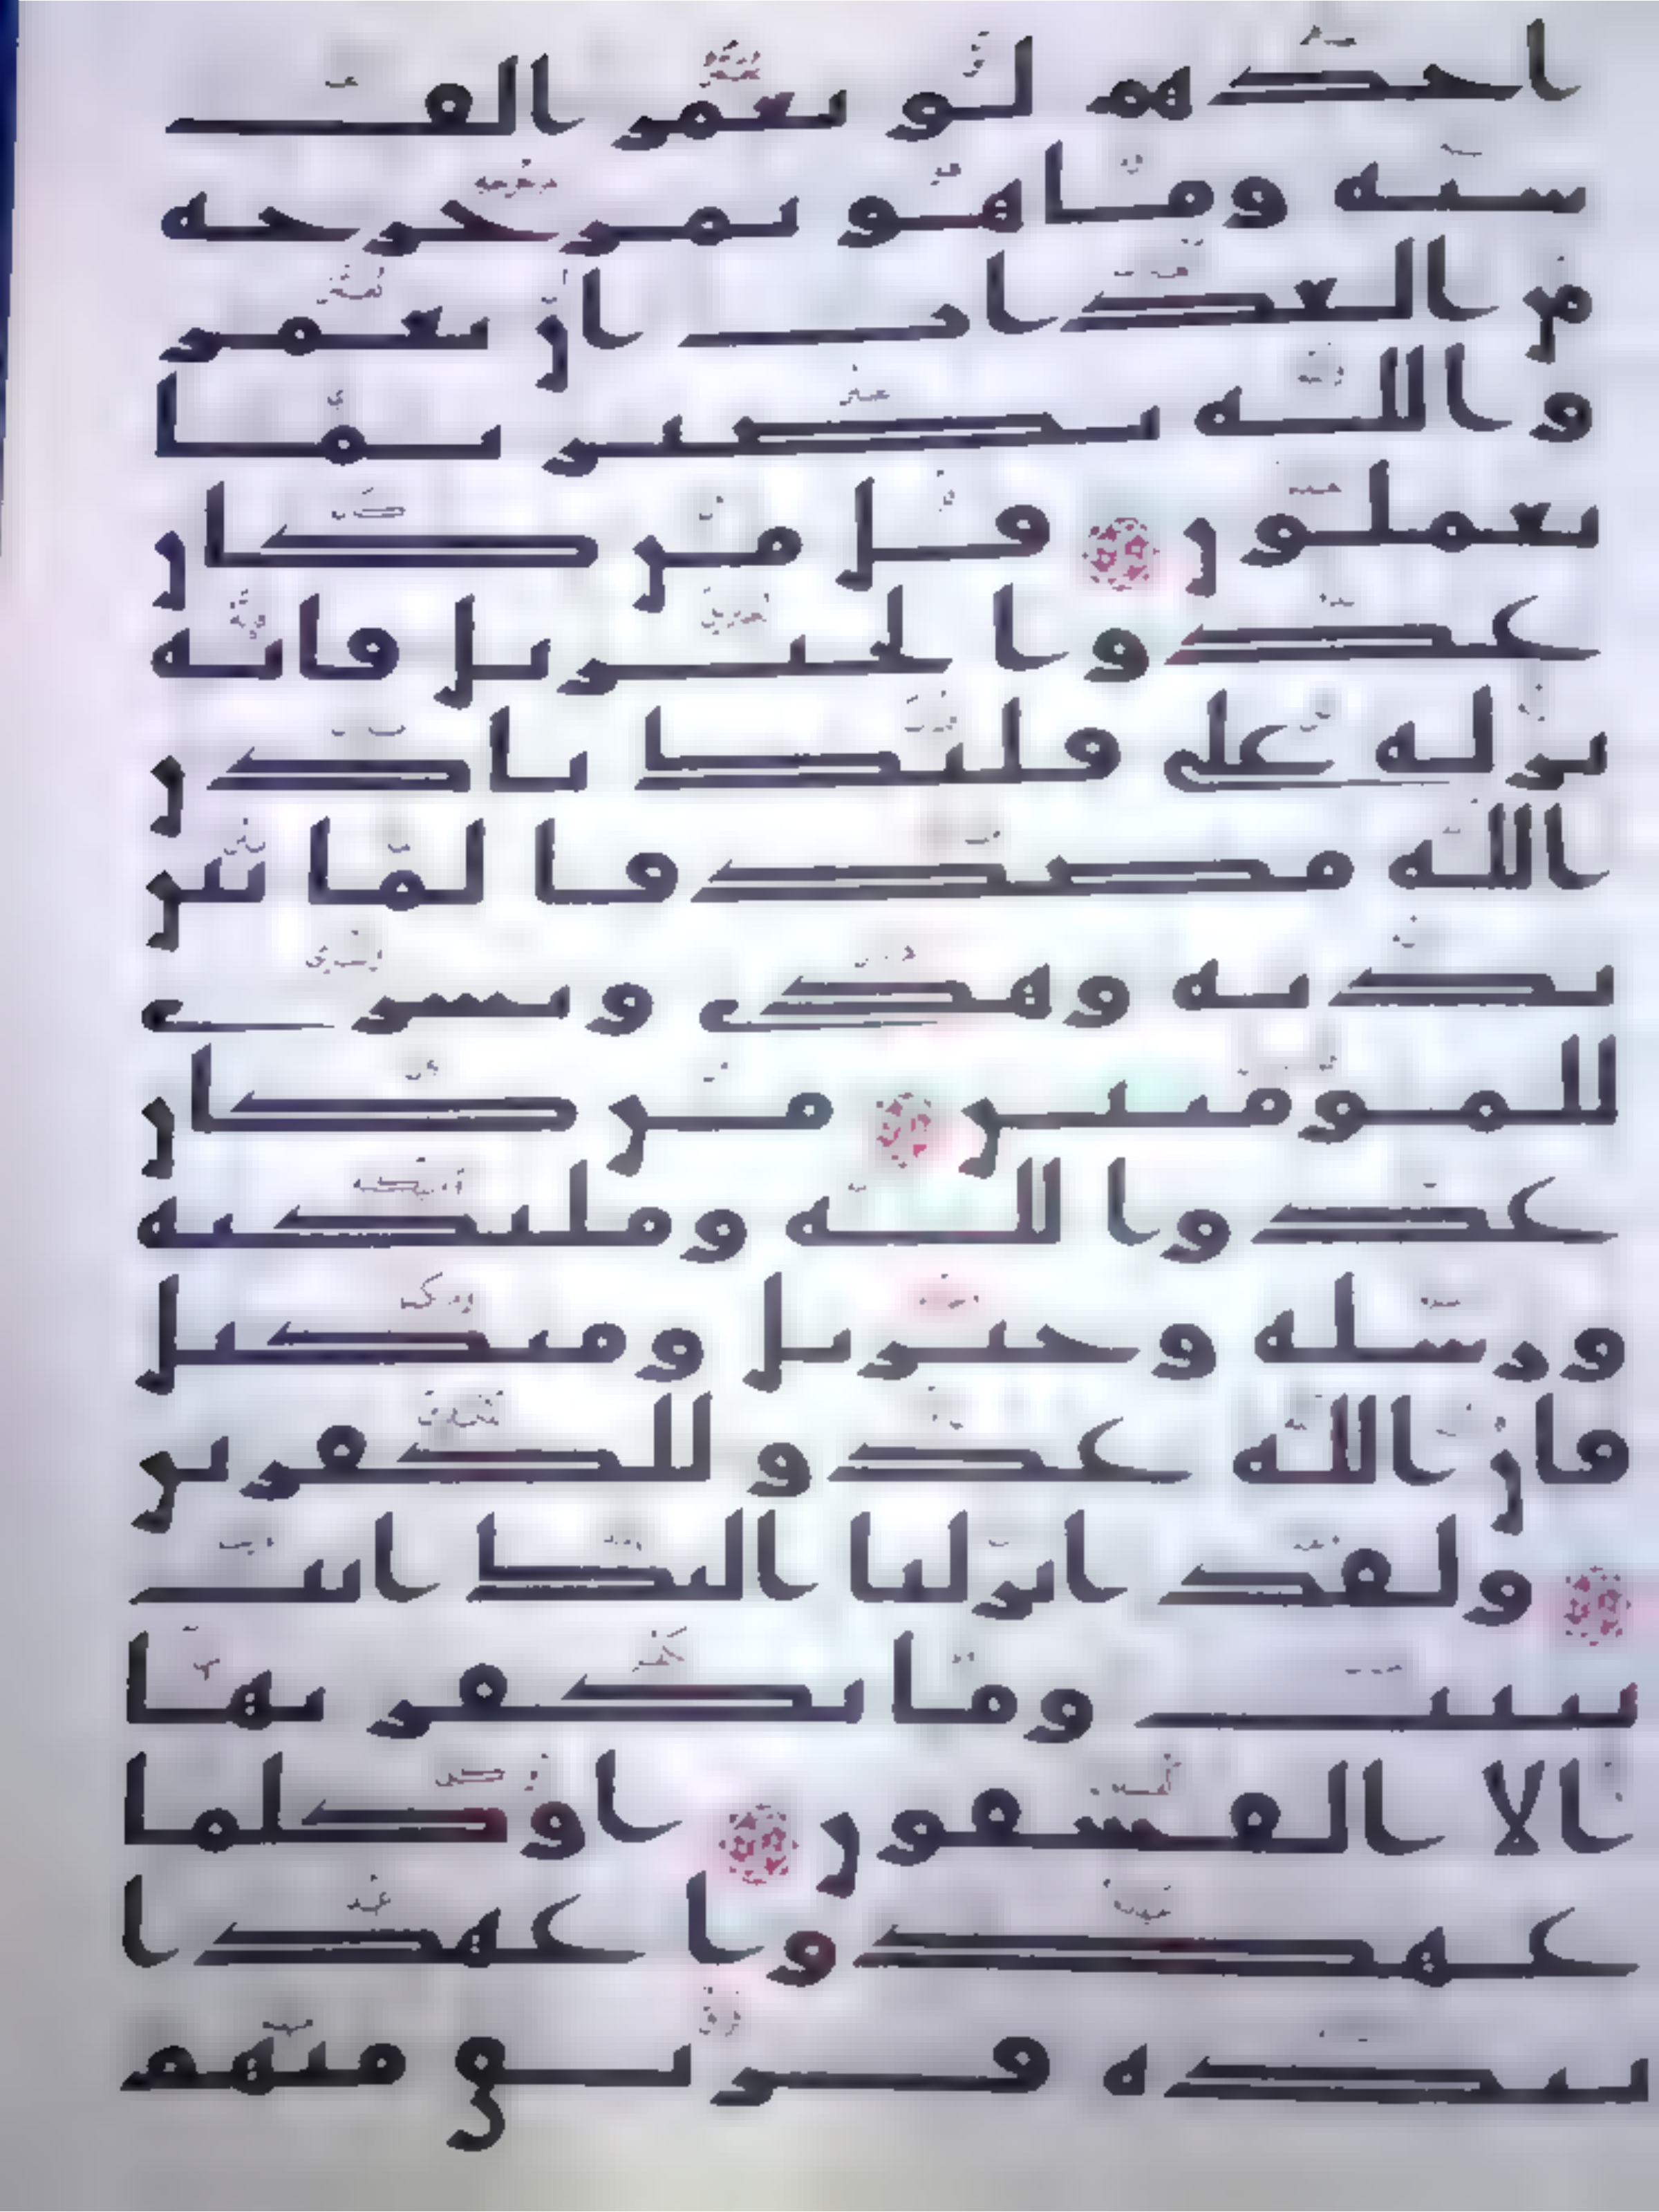 احدهم لو يعمر الف
سنه وما هو بمزحزحه
من العذاب ان يعمر
والله بصير بما
يعملون قل من كان
عدوا لجبريل فانه
نزله على قلبك باذن
الله مصدقا لما بين
يديه وهدى وبشرى
للمومنين من كان
عدوا لله ومليكته
ورسله وجبريل وميكيل
فان الله عدو للكفرين
ولقد انزلنا اليك ايت
بينت وما يكفر بها
الا الفسقون اوكلما
عهدوا عهدا
نبذه فريق منهم